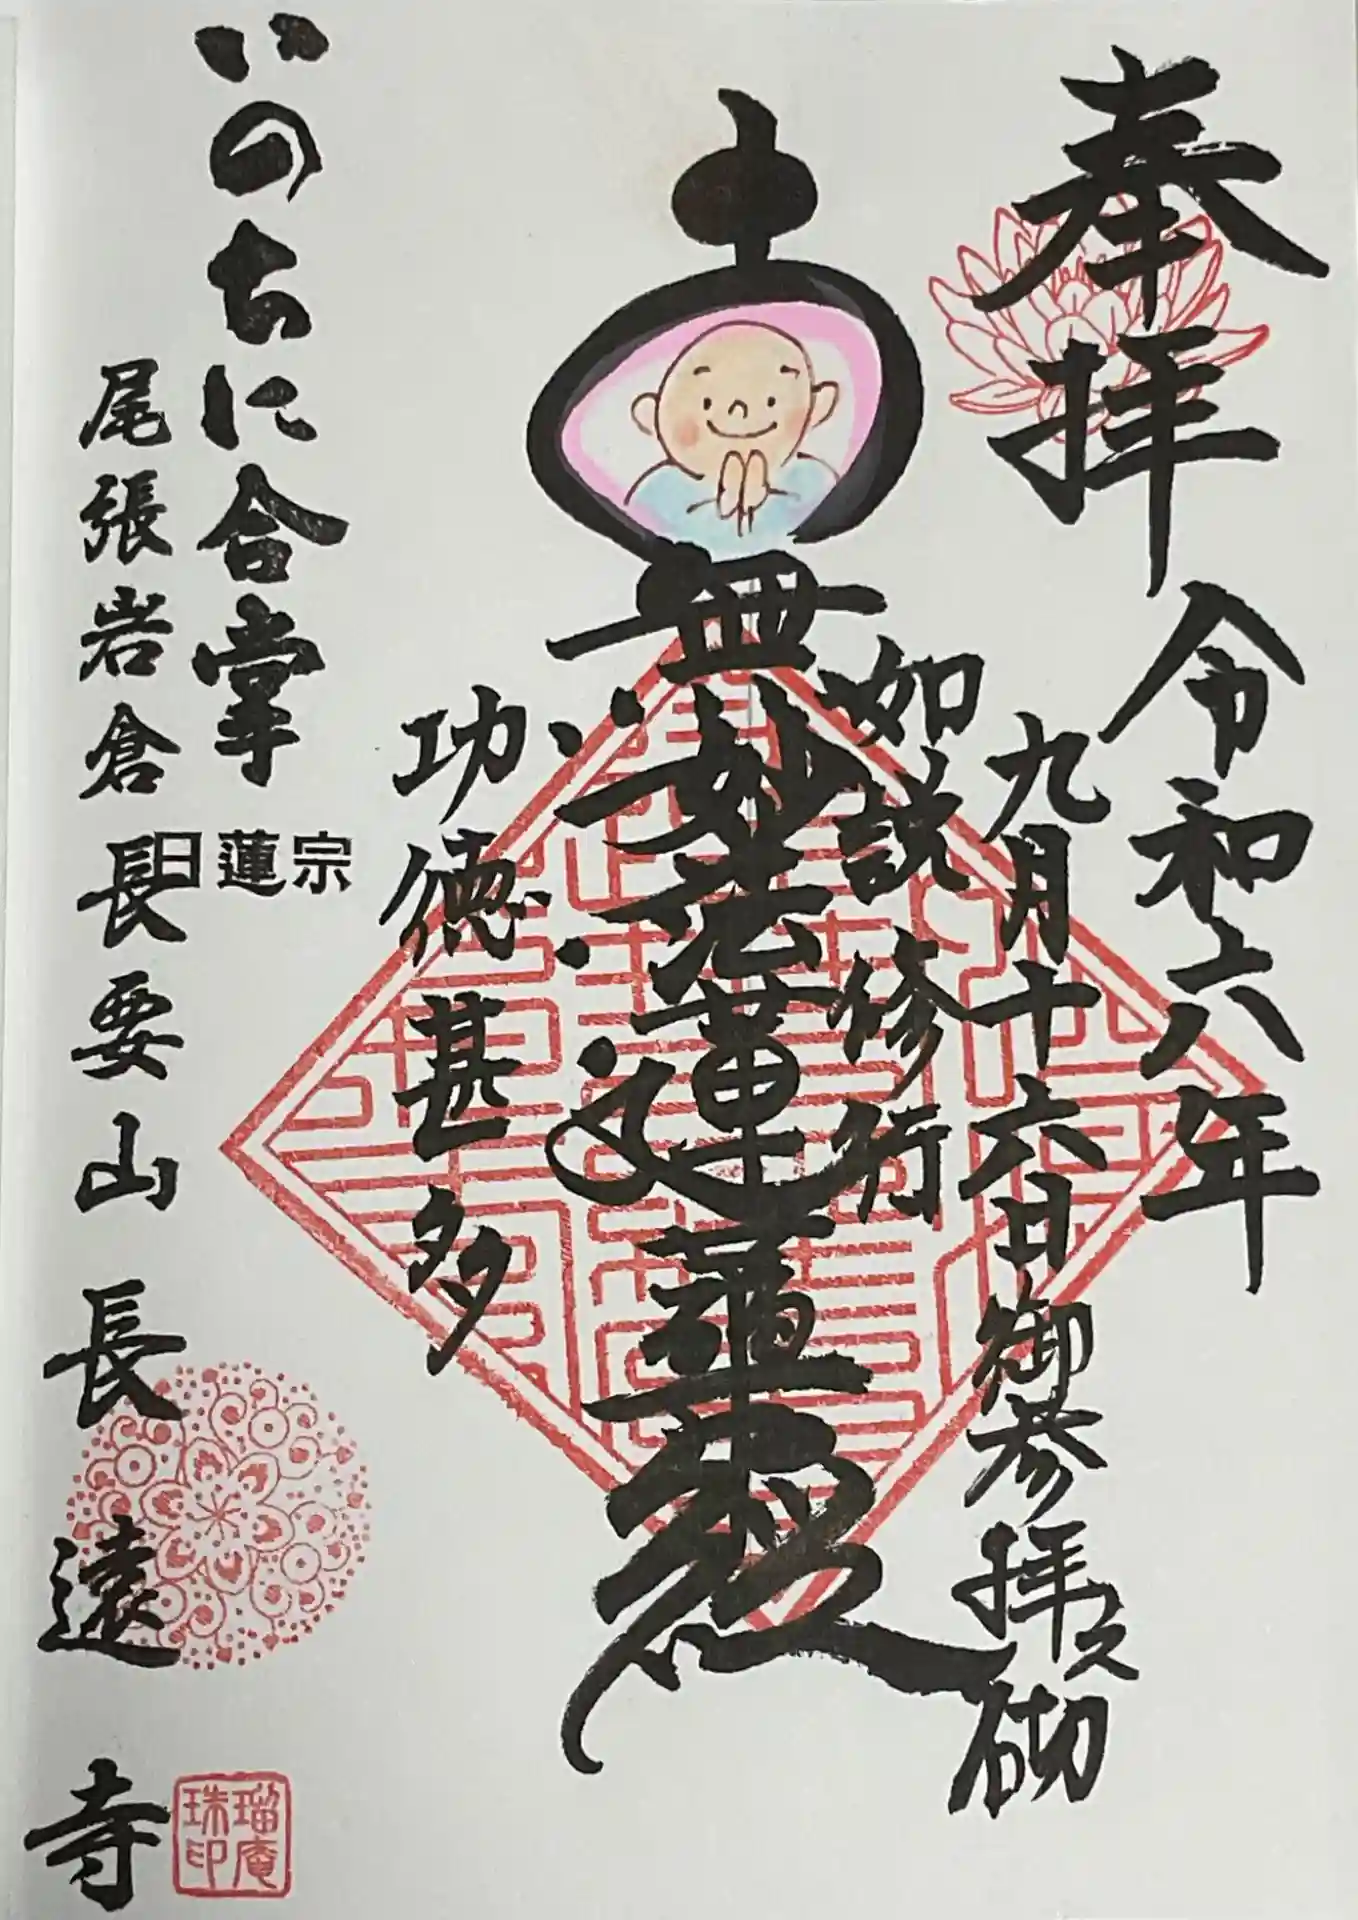 奉拝
令和六年
九月十六日御参拝之砌
如説修行
南無妙法蓮華経
功徳甚多
いのちに合掌
日蓮宗
尾張岩倉長要山長遠寺
瑠庵
珠印